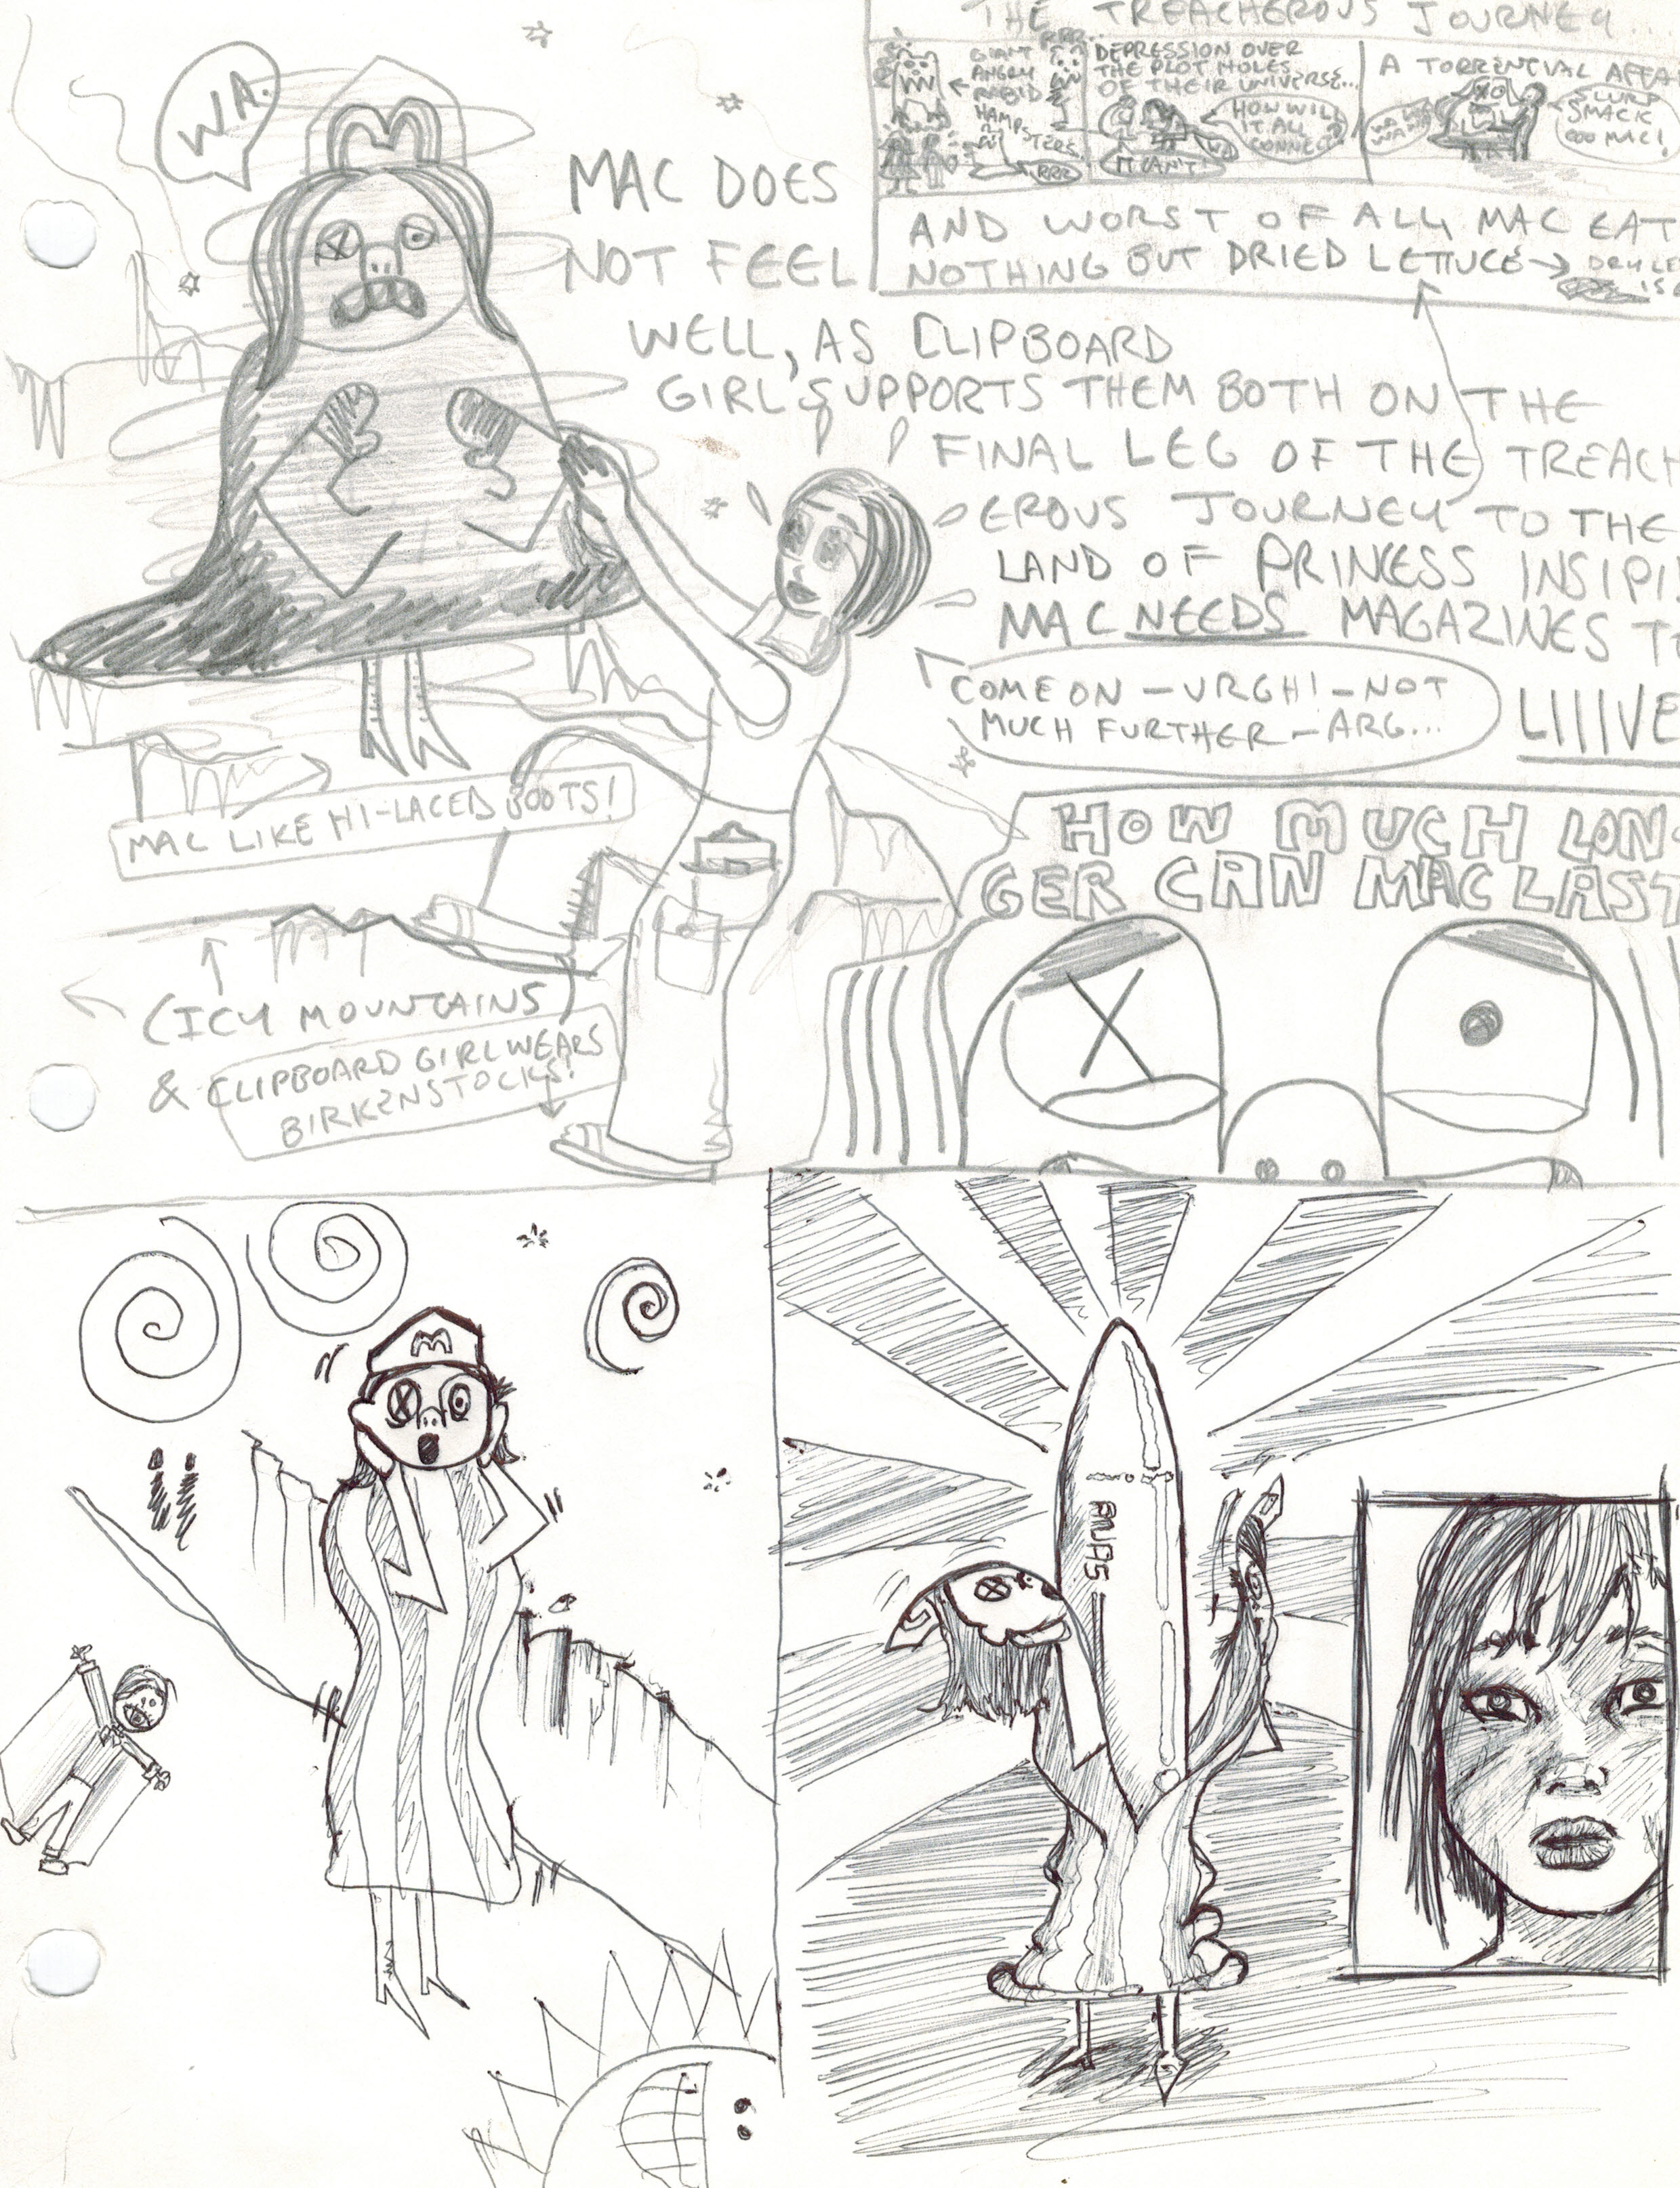 THE TREACHEROUS JOURNEY...
GIANT
ANGRY
RABID
HAMPSTERS.
RRR..
RRR
DEPRESSION OVER
THE PLOT HOLES
OF THEIR UNIVERSE...
HOW WILL
IT ALL
CONNECT?
WA
IT CAN'T!
A TORRENTIAL AFFA
WA WA
WA WA
SLURP
SMACK
OOO MAC!
AND WORST OF ALL, MAC EAT
NOTHING BUT DRIED LETTUCE → DRY LE
IS
WA.
MAC DOES
NOT FEEL
WELL, AS CLIPBOARD
GIRL SUPPORTS THEM BOTH ON THE
FINAL LEG OF THE TREACH
EROUS JOURNEY TO THE
LAND OF PRINCESS INSIPI
MAC NEEDS MAGAZINES T
LIIIIVE
COME ON – URGH! – NOT
MUCH FURTHER – ARG...
MAC LIKE HI-LACED BOOTS!
(ICY MOUNTAINS)
& CLIPBOARD GIRL WEARS
BIRKENSTOCKS!
HOW MUCH LON
GER CAN MAC LAST
M
M